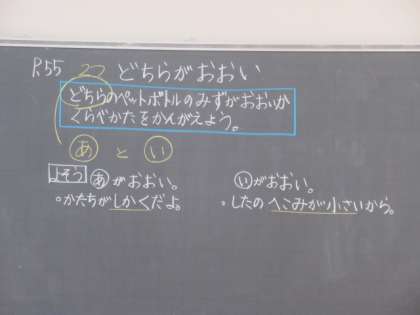 P.55 どちらがおおい
どちらのペットボトルのみずがおおいか
くらべかたをかんがえよう。
あ と い
よそう あがおおい。
・かたちがしかくだよ。
いがおおい。
・したのへこみが小さいから。